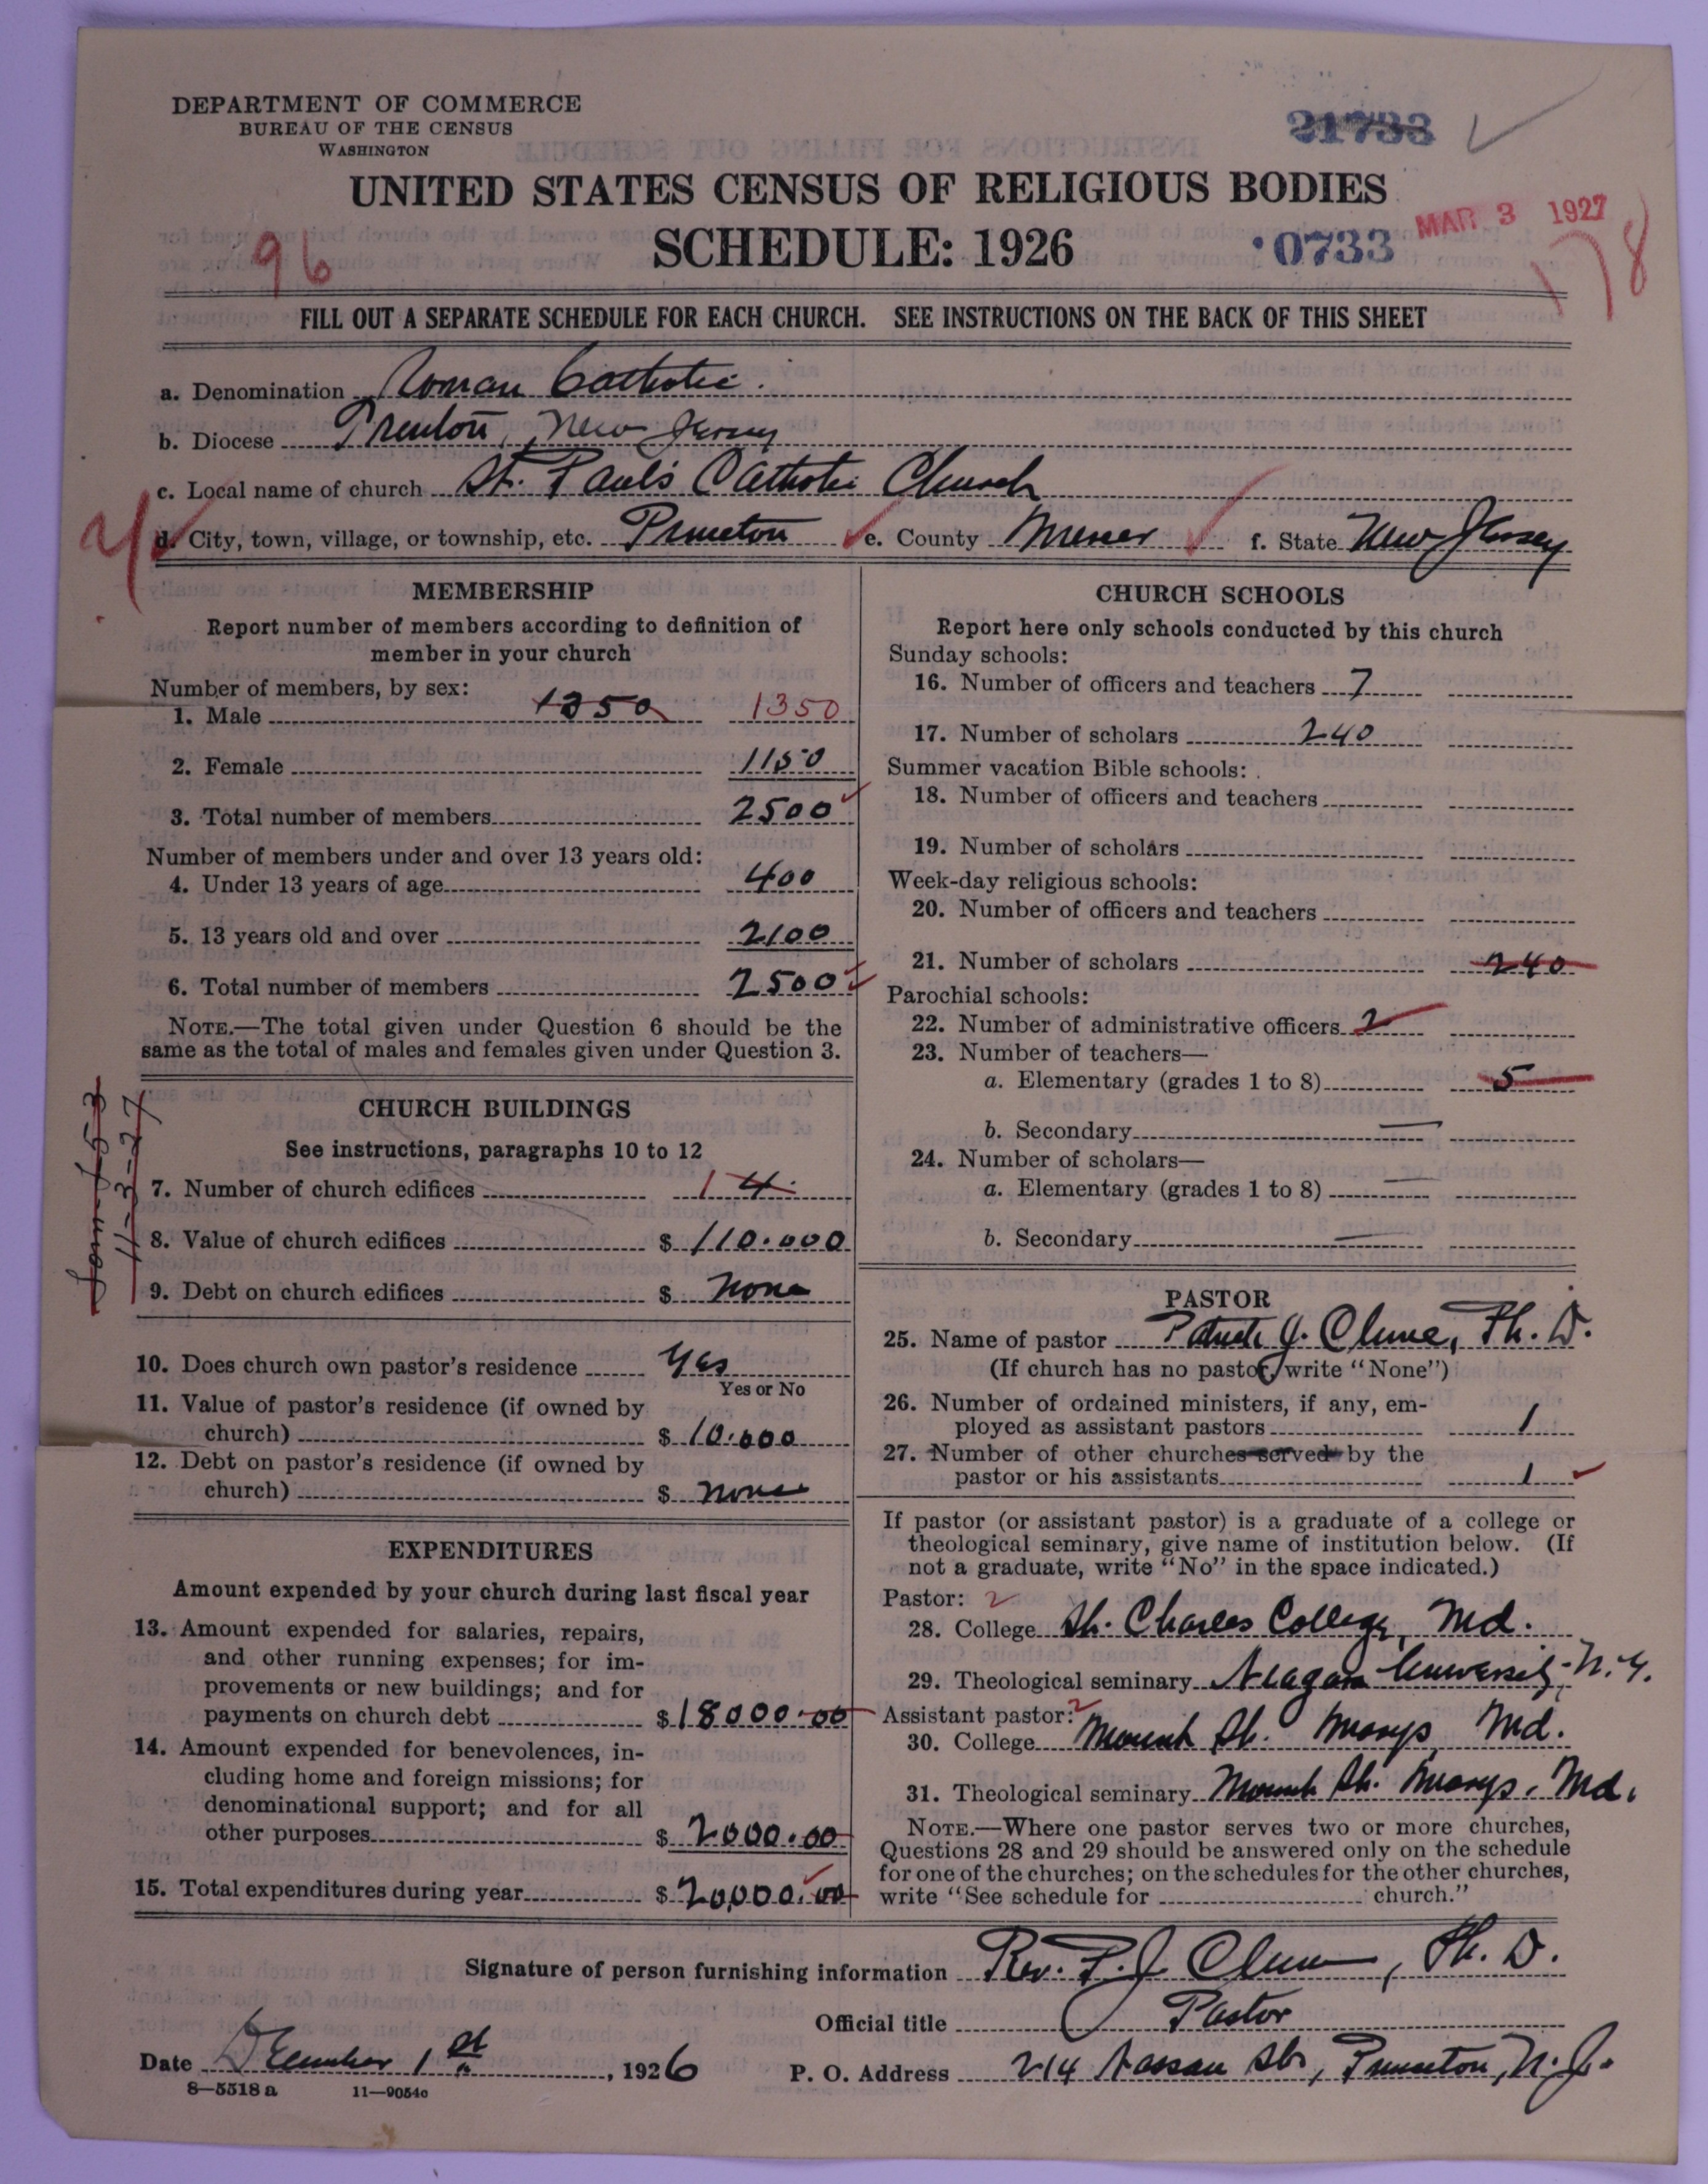 DEPARTMENT OF COMMERCE
BUREAU OF THE CENSUS
WASHINGTON
21733
UNITED STATES CENSUS OF RELIGIOUS BODIES
MAR 3 1927
96
SCHEDULE: 1926
0733
178
FILL OUT A SEPARATE SCHEDULE FOR EACH CHURCH. SEE INSTRUCTIONS ON THE BACK OF THIS SHEET
a. Denomination Roman Catholic.
b. Diocese Trenton, New Jersey
c. Local name of church St. Paul's Catholic Church
d. City, town, village, or township, etc. Princeton e. County Mercer f. State New Jersey
MEMBERSHIP
Report number of members according to definition of
member in your church
Number of members, by sex:
1. Male 1350 1350
2. Female 1150
3. Total number of members 2500
Number of members under and over 13 years old:
4. Under 13 years of age 400
5. 13 years old and over 2100
6. Total number of members 2500
NOTE.—The total given under Question 6 should be the
same as the total of males and females given under Question 3.
CHURCH BUILDINGS
See instructions, paragraphs 10 to 12
7. Number of church edifices 1 4
8. Value of church edifices $ 110.000
9. Debt on church edifices $ None
11-3-27
10. Does church own pastor's residence Yes
Yes or No
11. Value of pastor's residence (if owned by
church) $ 10.000
12. Debt on pastor's residence (if owned by
church) $ None
EXPENDITURES
Amount expended by your church during last fiscal year
13. Amount expended for salaries, repairs,
and other running expenses; for im-
provements or new buildings; and for
payments on church debt $ 18000.00
14. Amount expended for benevolences, in-
cluding home and foreign missions; for
denominational support; and for all
other purposes $ 2000.00
15. Total expenditures during year $ 20,000.00
CHURCH SCHOOLS
Report here only schools conducted by this church
Sunday schools:
16. Number of officers and teachers 7
17. Number of scholars 240
Summer vacation Bible schools:
18. Number of officers and teachers
19. Number of scholars
Week-day religious schools:
20. Number of officers and teachers
21. Number of scholars 240
Parochial schools:
22. Number of administrative officers 2
23. Number of teachers—
a. Elementary (grades 1 to 8) 5
b. Secondary —
24. Number of scholars—
a. Elementary (grades 1 to 8) —
b. Secondary —
PASTOR
25. Name of pastor Patrick J. Clune, Ph. D.
(If church has no pastor, write "None")
26. Number of ordained ministers, if any, em-
ployed as assistant pastors 1
27. Number of other churches served by the
pastor or his assistants 1
If pastor (or assistant pastor) is a graduate of a college or
theological seminary, give name of institution below. (If
not a graduate, write "No" in the space indicated.)
Pastor: 2
28. College St. Charles College, Md.
29. Theological seminary Niagara University - N.Y.
Assistant pastor: 2
30. College Mount St. Marys Md.
31. Theological seminary Mount St. Marys, Md.
NOTE.—Where one pastor serves two or more churches,
Questions 28 and 29 should be answered only on the schedule
for one of the churches; on the schedules for the other churches,
write "See schedule for church."
Signature of person furnishing information Rev. P. J. Clune, Ph. D.
Official title Pastor
Date December 1st, 1926 P. O. Address 214 Nassau St., Princeton, N.J.
8—5518 a 11—9054c